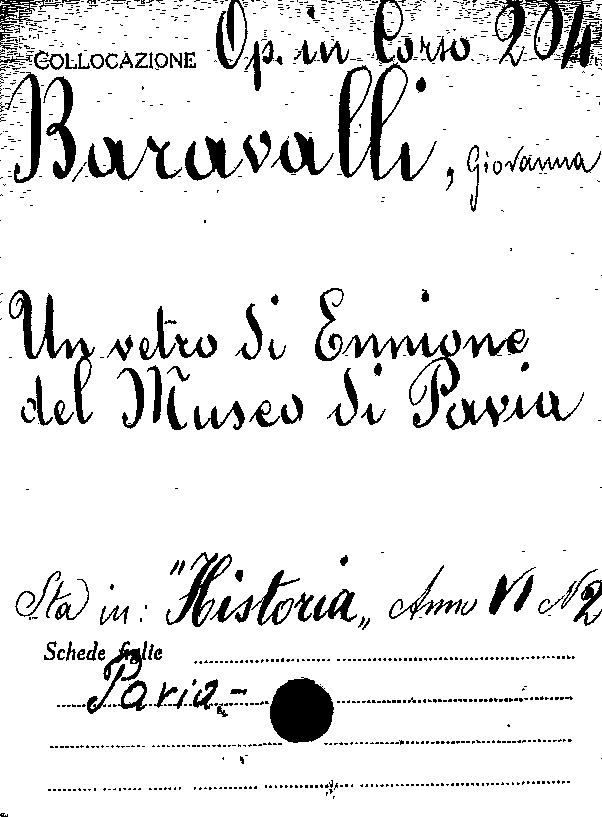 COLLOCAZIONE Op. in Corso 204
Baravalli, Giovanna
Un vetro di Ennione
del Museo di Pavia
Sta in: "Historia„ Anno VI N 2
Schede figlie
Pavia.-